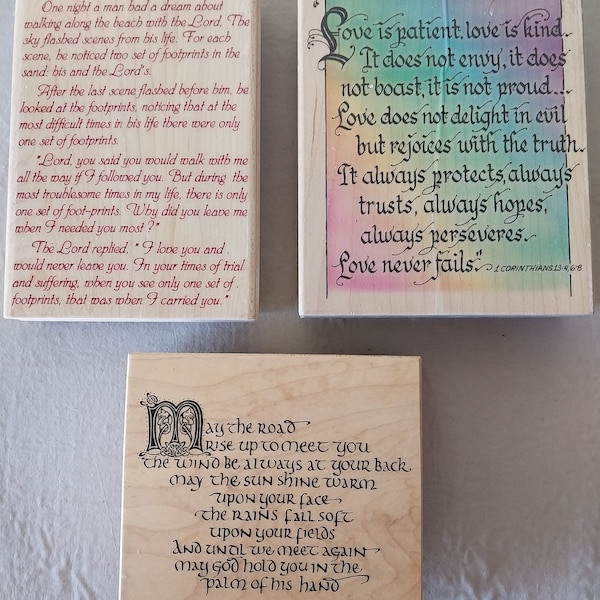 One night a man had a dream about
walking along the beach with the Lord. The
sky flashed scenes from his life. For each
scene, he noticed two set of footprints in the
sand: his and the Lord's.
After the last scene flashed before him, he
looked at the footprints, noticing that at the
most difficult times in his life there were only
one set of footprints.
"Lord, you said you would walk with me
all the way if I followed you. But during the
most troublesome times in my life, there is only
one set of foot-prints. Why did you leave me
when I needed you most?"
The Lord replied. "I love you and
would never leave you. In your times of trial
and suffering, when you see only one set of
footprints, that was when I carried you."
Love is patient, love is kind..
It does not envy, it does
not boast, it is not proud...
Love does not delight in evil
but rejoices with the truth.
It always protects, always
trusts, always hopes,
always perseveres.
Love never fails."
1 CORINTHIANS 13:4,6-8
May the road
rise up to meet you
the wind be always at your back
may the sun shine warm
upon your face
the rains fall soft
upon your fields
And until we meet again
may God hold you in the
palm of his hand